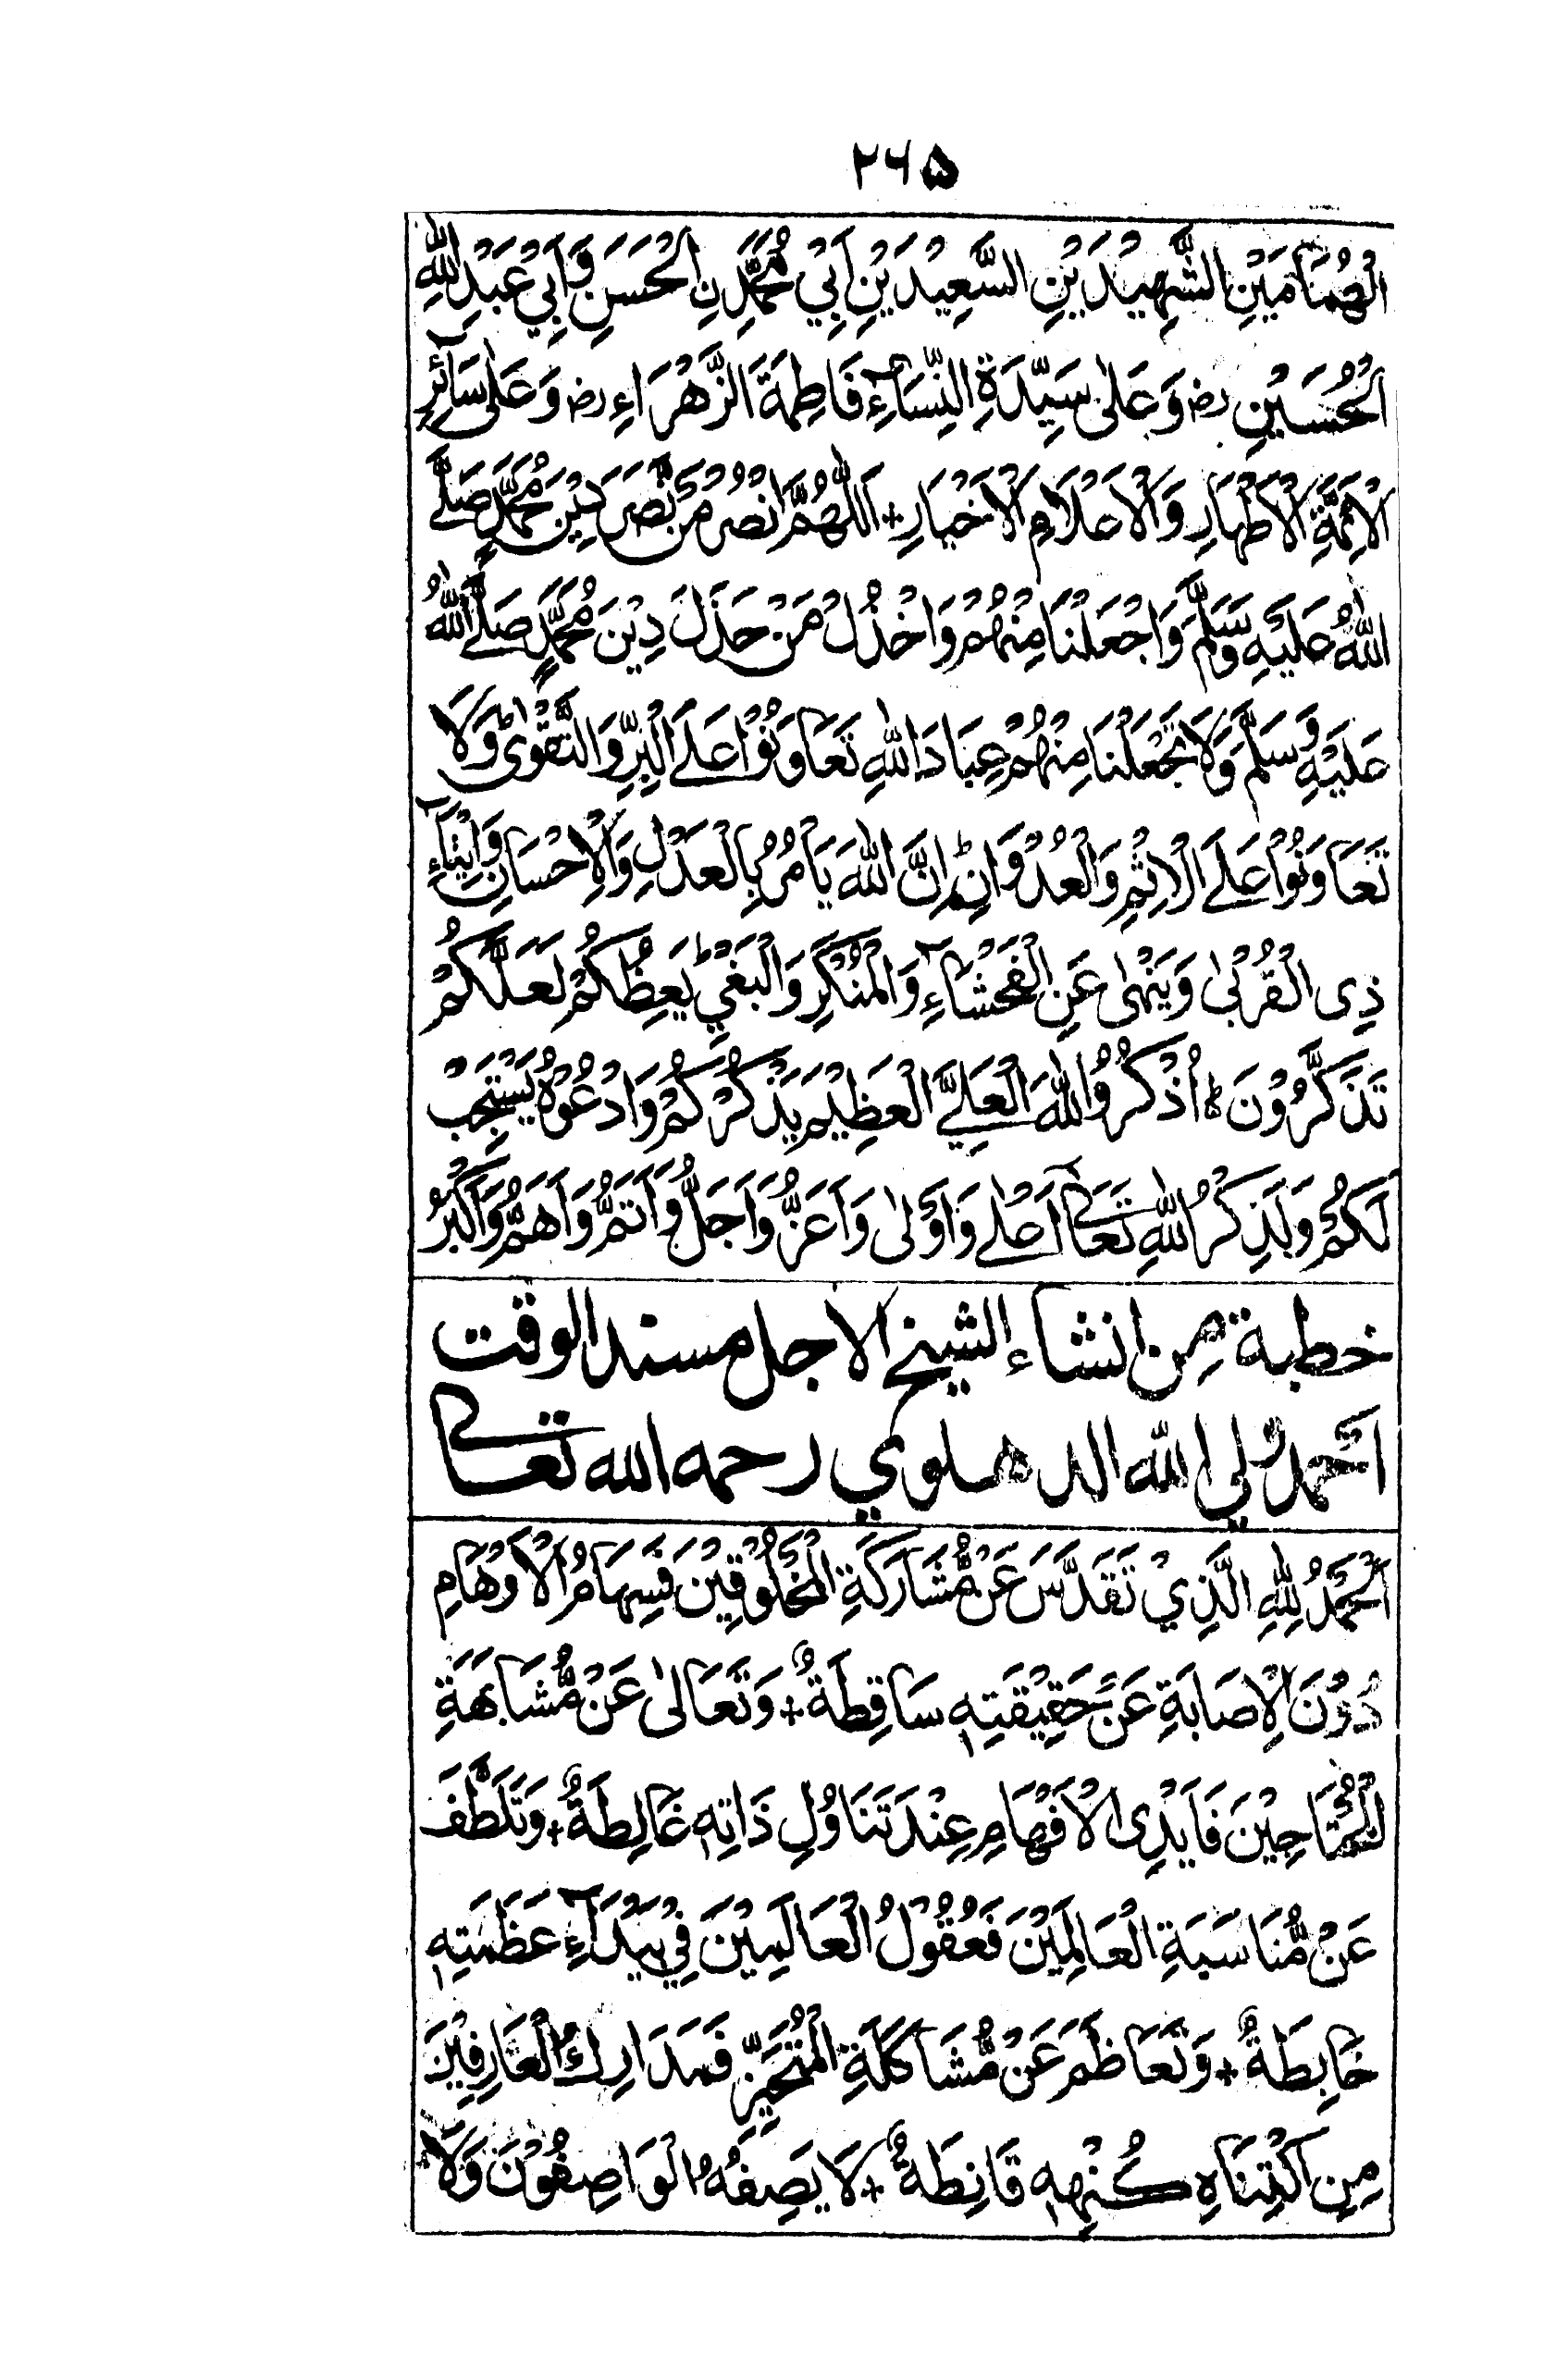 ۲۶۵
الْهُمَامَيْنِ الشَّهِيْدَيْنِ السَّعِيْدَيْنِ اَبِيْ مُحَمَّدِنِ الْحَسَنِ وَاَبِيْ عَبْدِ اللهِ
الْحُسَيْنِ رض وَعَلٰى سَيِّدَةِ النِّسَآءِ فَاطِمَةَ الزَّهْرَاءِ رض وَعَلٰى سَآئِرِ
الْاَئِمَّةِ الْاَطْهَارِ وَالْاَعْلَامِ الْاَخْيَارِ + اَللّٰهُمَّ انْصُرْ مَنْ نَّصَرَ دِيْنَ مُحَمَّدٍ صَلَّى
اللهُ عَلَيْهِ وَسَلَّمَ وَاجْعَلْنَا مِنْهُمْ وَاخْذُلْ مَنْ خَذَلَ دِيْنَ مُحَمَّدٍ صَلَّى اللهُ
عَلَيْهِ وَسَلَّمَ وَلَا تَجْعَلْنَا مِنْهُمْ عِبَادَ اللهِ تَعَاوَنُوْا عَلَى الْبِرِّ وَالتَّقْوٰى ؕ وَلَا
تَعَاوَنُوْا عَلَى الْاِثْمِ وَالْعُدْوَانِ ؕ اِنَّ اللهَ يَاْمُرُ بِالْعَدْلِ وَالْاِحْسَانِ وَاِيْتَآءِ
ذِى الْقُرْبٰى وَيَنْهٰى عَنِ الْفَحْشَآءِ وَالْمُنْكَرِ وَالْبَغْيِ ؕ يَعِظُكُمْ لَعَلَّكُمْ
تَذَكَّرُوْنَ ؕ اُذْكُرُوا اللهَ الْعَلِيَّ الْعَظِيْمَ يَذْكُرْكُمْ وَادْعُوْهُ يَسْتَجِبْ
لَكُمْ وَلَذِكْرُ اللهِ تَعَالٰى اَعْلٰى وَاَوْلٰى وَاَعَزُّ وَاَجَلُّ وَاَتَمُّ وَاَهَمُّ وَاَكْبَرُ
خطبة من انشاء الشيخ الاجل مسند الوقت
احمد ولي الله الدهلوي رحمه الله تعالى
اَلْحَمْدُ لِلّٰهِ الَّذِيْ تَقَدَّسَ عَنْ مُّشَارَكَةِ الْمَخْلُوْقِيْنَ فَسِهَامُ الْاَوْهَامِ
دُوْنَ الْاِصَابَةِ عَنْ حَقِيْقَتِهٖ سَاقِطَةٌ + وَتَعَالٰى عَنْ مُّشَابَهَةِ
الْمُتَاحِيْنَ فَاَيْدِى الْاَفْهَامِ عِنْدَ تَنَاوُلِ ذَاتِهٖ غَالِطَةٌ + وَتَلَطَّفَ
عَنْ مُّنَاسَبَةِ الْعَالَمِيْنَ فَعُقُوْلُ الْعَالَمِيْنَ فِيْ بَيْدَآءِ عَظَمَتِهٖ
خَابِطَةٌ + وَتَعَاظَمَ عَنْ مُّشَاكَلَةِ الْمُتَحَيِّزِ فَمَدَارِكُ الْعَارِفِيْنَ
مِنِ اكْتِنَاهِ كُنْهِهٖ قَانِطَةٌ + لَا يَصِفُهُ الْوَاصِفُوْنَ وَلَا